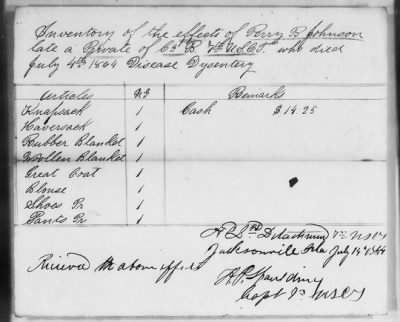 Inventory of the effects of Perry R Johnson
late a Private of Co B. 7th U.S.C.T. who died
July 4th 1864 Disease Dysentery
Articles No Remarks
Knapsack 1 Cash $14.25
Haversack 1
Rubber Blanket 1
Woollen Blanket 1
Great Coat 1
Blouse 1
Shoes Pr 1
Pants Pr 1
Detachment 7th USCT
Jacksonville Fla July 14th 1864
Received the above effects
A R Spaulding
Capt 7th USCT